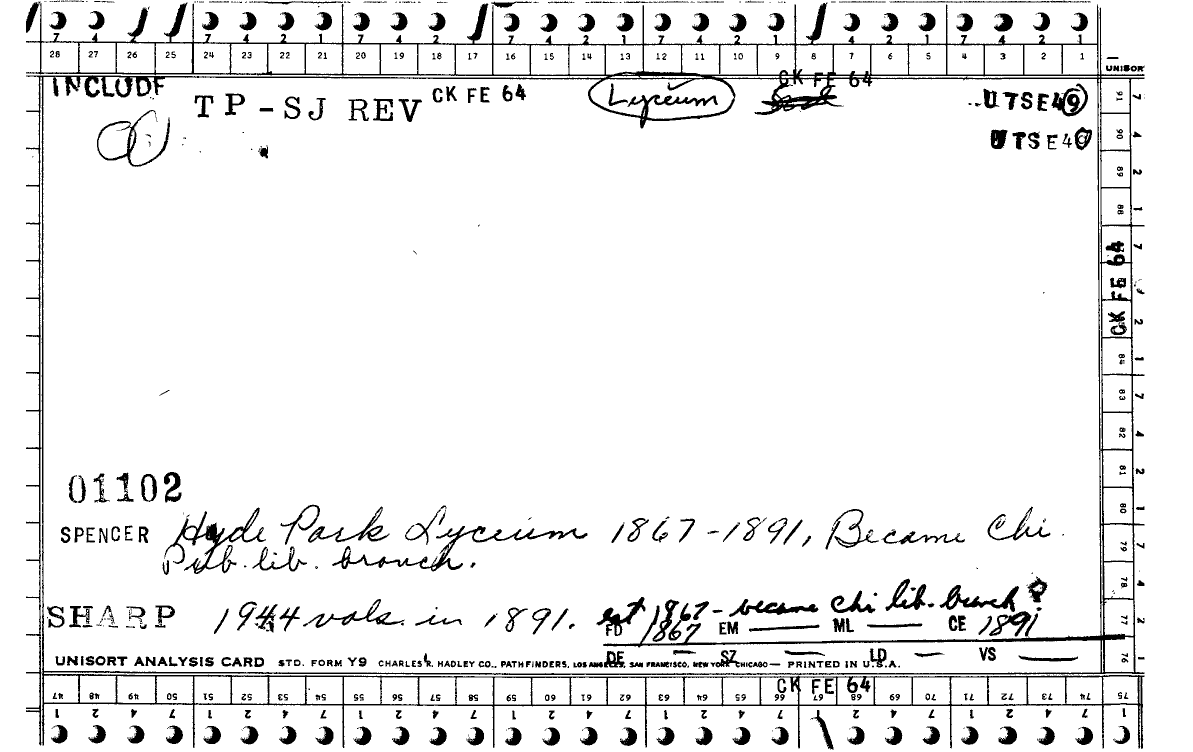 7 4 2 1 7 4 2 1 7 4 2 1 7 4 2 1 7 4 2 1 7 4 2 1
28 27 26 25 24 23 22 21 20 19 18 17 16 15 14 13 12 11 10 9 8 7 6 5 4 3 2 1
UNISOR
INCLUDE
TP-SJ REV CK FE 64 Lyceum CK FE 64 UTSE49
UTSE49
91 90 89 88 84 83 82 81 80 79 78 77 76
CK FE 64
01102
SPENCER Hyde Park Lyceum 1867-1891, Became Chi
Pub. lib. branch.
SHARP 1944 vols. in 1891. est 1867 - became Chi lib. branch ?
FD 1867 EM — ML — CE 1891
DE — SZ — LD — VS —
UNISORT ANALYSIS CARD STD. FORM Y9 CHARLES R. HADLEY CO., PATHFINDERS, LOS ANGELES, SAN FRANCISCO, NEW YORK, CHICAGO — PRINTED IN U.S.A.
CK FE 64
47 48 49 50 51 52 53 54 55 56 57 58 59 60 61 62 63 64 65 66 67 68 69 70 71 72 73 74 75
1 2 4 7 1 2 4 7 1 2 4 7 1 2 4 7 1 2 4 7 1 2 4 7 1 2 4 7 1